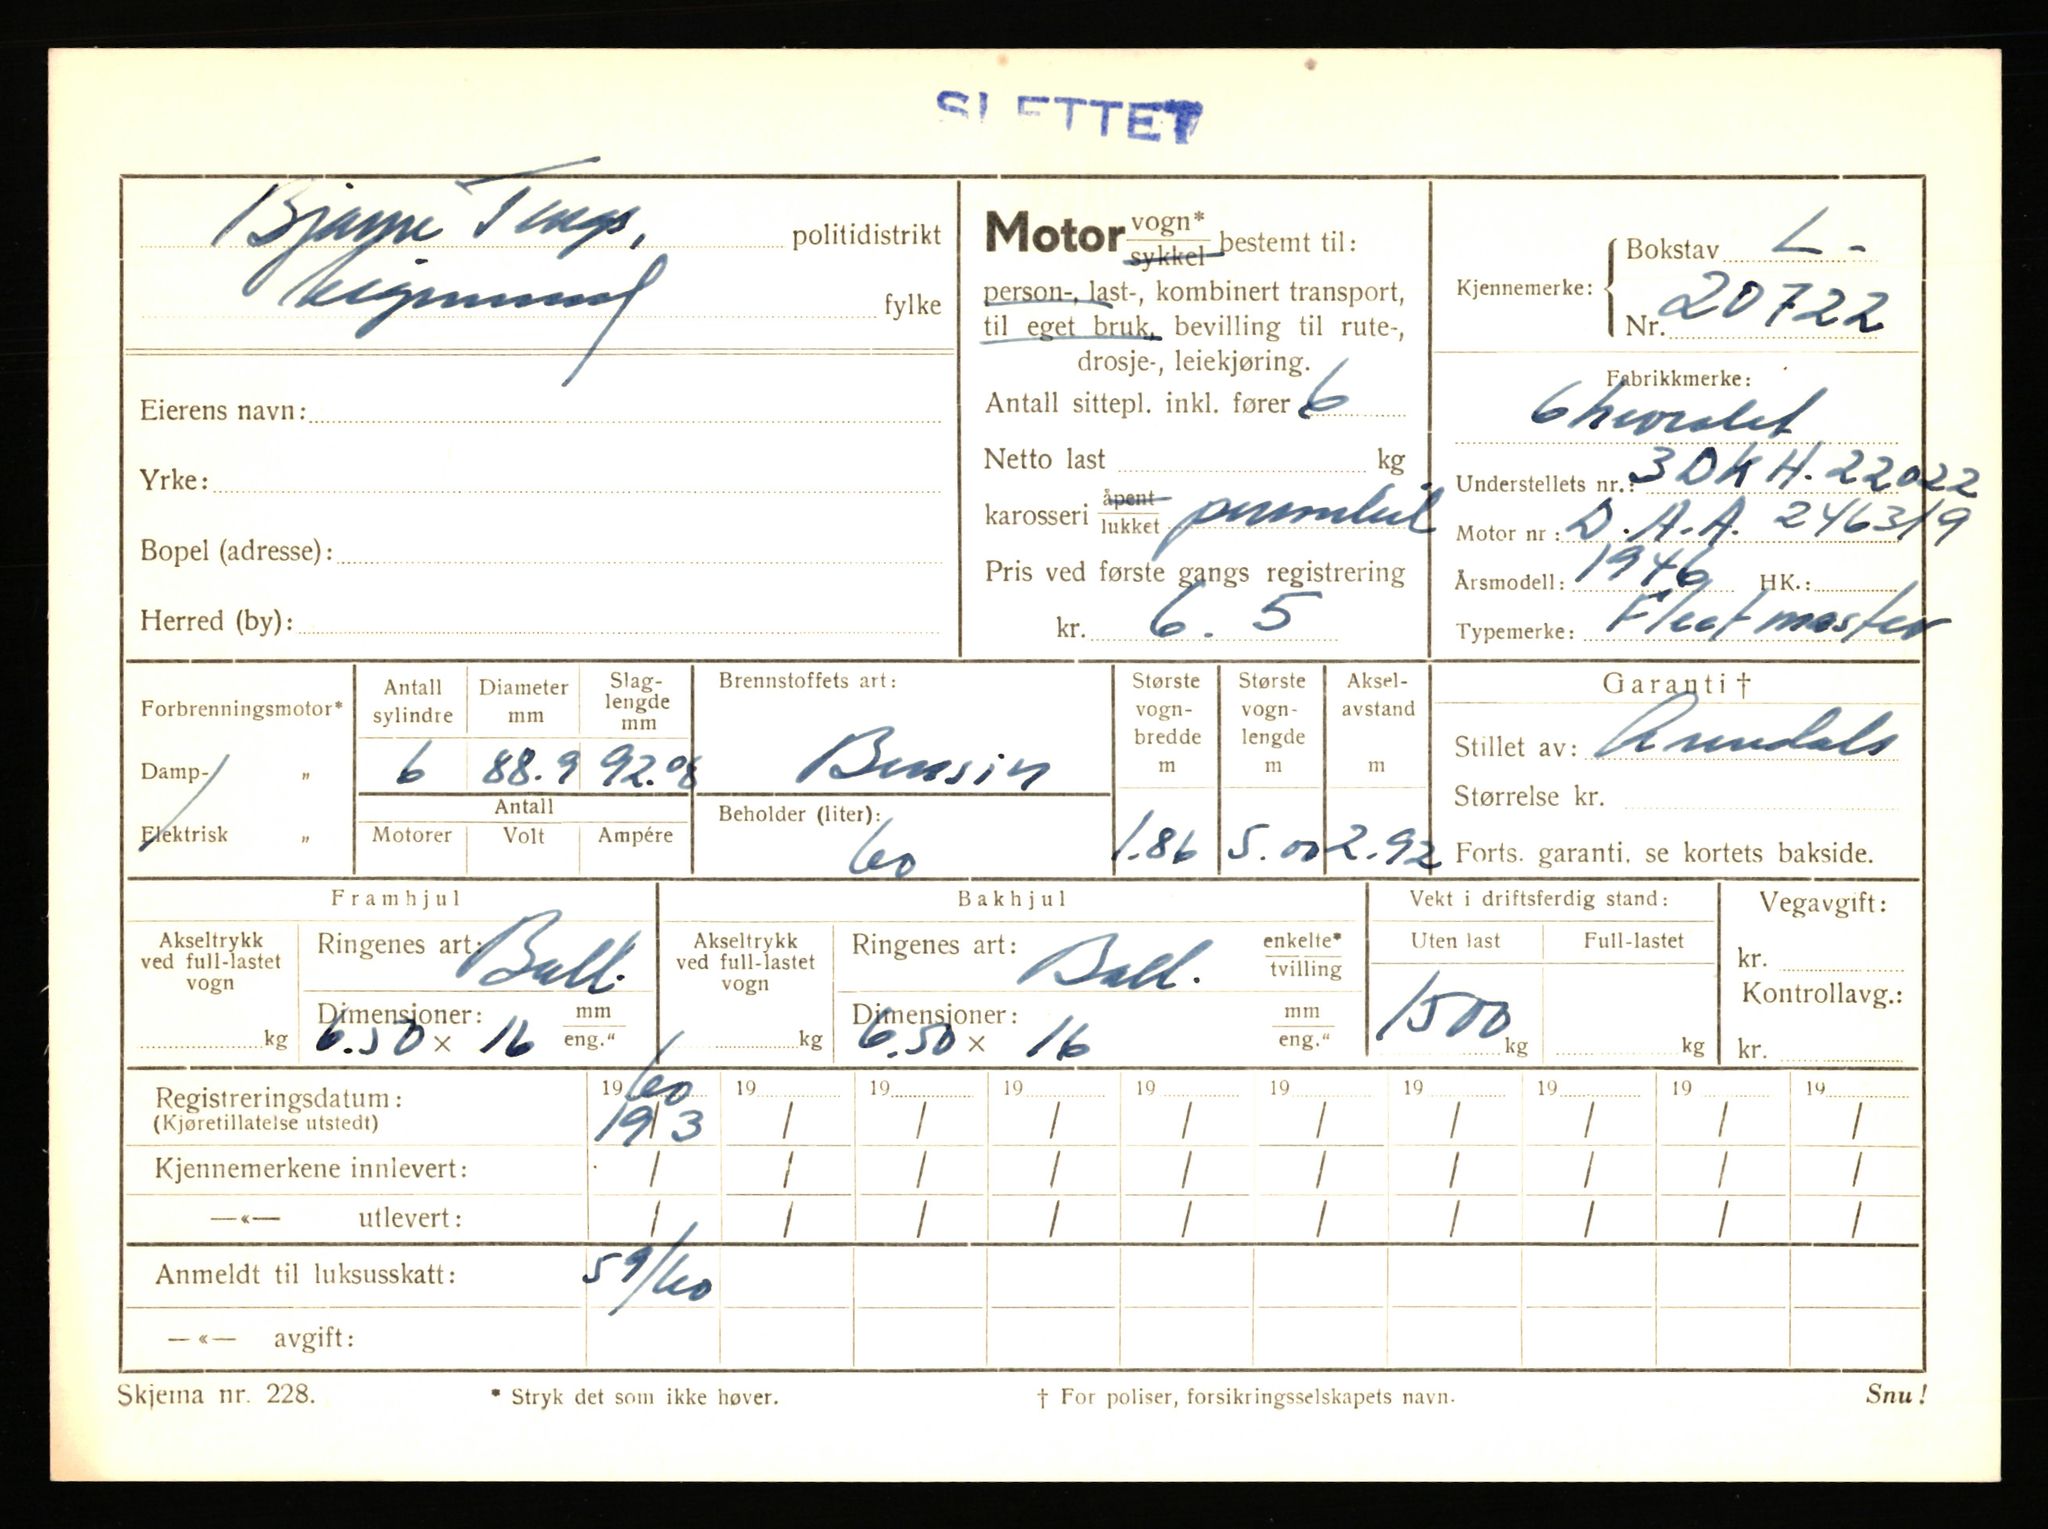 SLETTET
Bjarne Tengs, politidistrikt
Vigrunn fylke
Eierens navn:
Yrke:
Bopel (adresse):
Herred (by):
Motor vogn* / sykkel bestemt til:
person-, last-, kombinert transport,
til eget bruk, bevilling til rute-,
drosje-, leiekjøring.
Antall sittepl. inkl. fører 6
Netto last kg
karosseri åpent / lukket personbil
Pris ved første gangs registrering
kr. 6.5
Kjennemerke: Bokstav L-
Nr. 20722
Fabrikkmerke:
Chevrolet
Understellets nr.: 3 DKH. 22022
Motor nr: D.A.A. 246319
Årsmodell: 1946 HK.:
Typemerke: Fleetmaster
Forbrenningsmotor*
Damp- „
Elektrisk „
Antall sylindre Diameter mm Slaglengde mm
6 88.9 92.08
Antall
Motorer Volt Ampére
Brennstoffets art:
Bensin
Beholder (liter):
60
Største vogn-bredde m
1.86
Største vogn-lengde m
5.00
Aksel-avstand m
2.92
Garanti †
Stillet av: Arendals
Størrelse kr.
Forts. garanti. se kortets bakside.
Framhjul
Akseltrykk ved full-lastet vogn
kg
Ringenes art: Ball.
Dimensjoner: mm / eng."
6.50 × 16
Bakhjul
Akseltrykk ved full-lastet vogn
kg
Ringenes art: Ball. enkelte* / tvilling
Dimensjoner: mm / eng."
6.50 × 16
Vekt i driftsferdig stand:
Uten last Full-lastet
1500 kg kg
Vegavgift:
kr.
Kontrollavg.:
kr.
Registreringsdatum: 1960 19 19 19 19 19 19 19 19 19
(Kjøretillatelse utstedt) 19/3 / / / / / / / / /
Kjennemerkene innlevert: / / / / / / / / / /
—«— utlevert: / / / / / / / / / /
Anmeldt til luksusskatt: 59/60
—«— avgift:
Skjema nr. 228. * Stryk det som ikke høver. † For poliser, forsikringsselskapets navn. Snu!